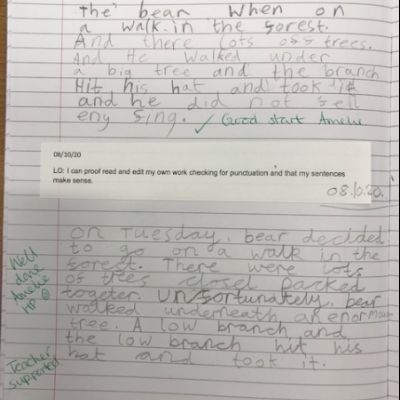 The bear when on
a walk in the forest.
And there lots off trees.
And He walked under
a big tree and the branch
Hit his hat and took it
and he did not sell
eny sing. ✓ Good start Amelie
08/10/20
LO: I can proof read and edit my own work checking for punctuation and that my sentences
make sense.
08.10.20.
on Tuesday, bear decided
to go on a walk in the
forest. There were lots
of trees closel packed
togeter. Unfortunately, bear
walked underneath an enormous
tree. A low branch and
the low branch hit his
hat and took it.
Well
done
Amelie
HP
Teacher
supported